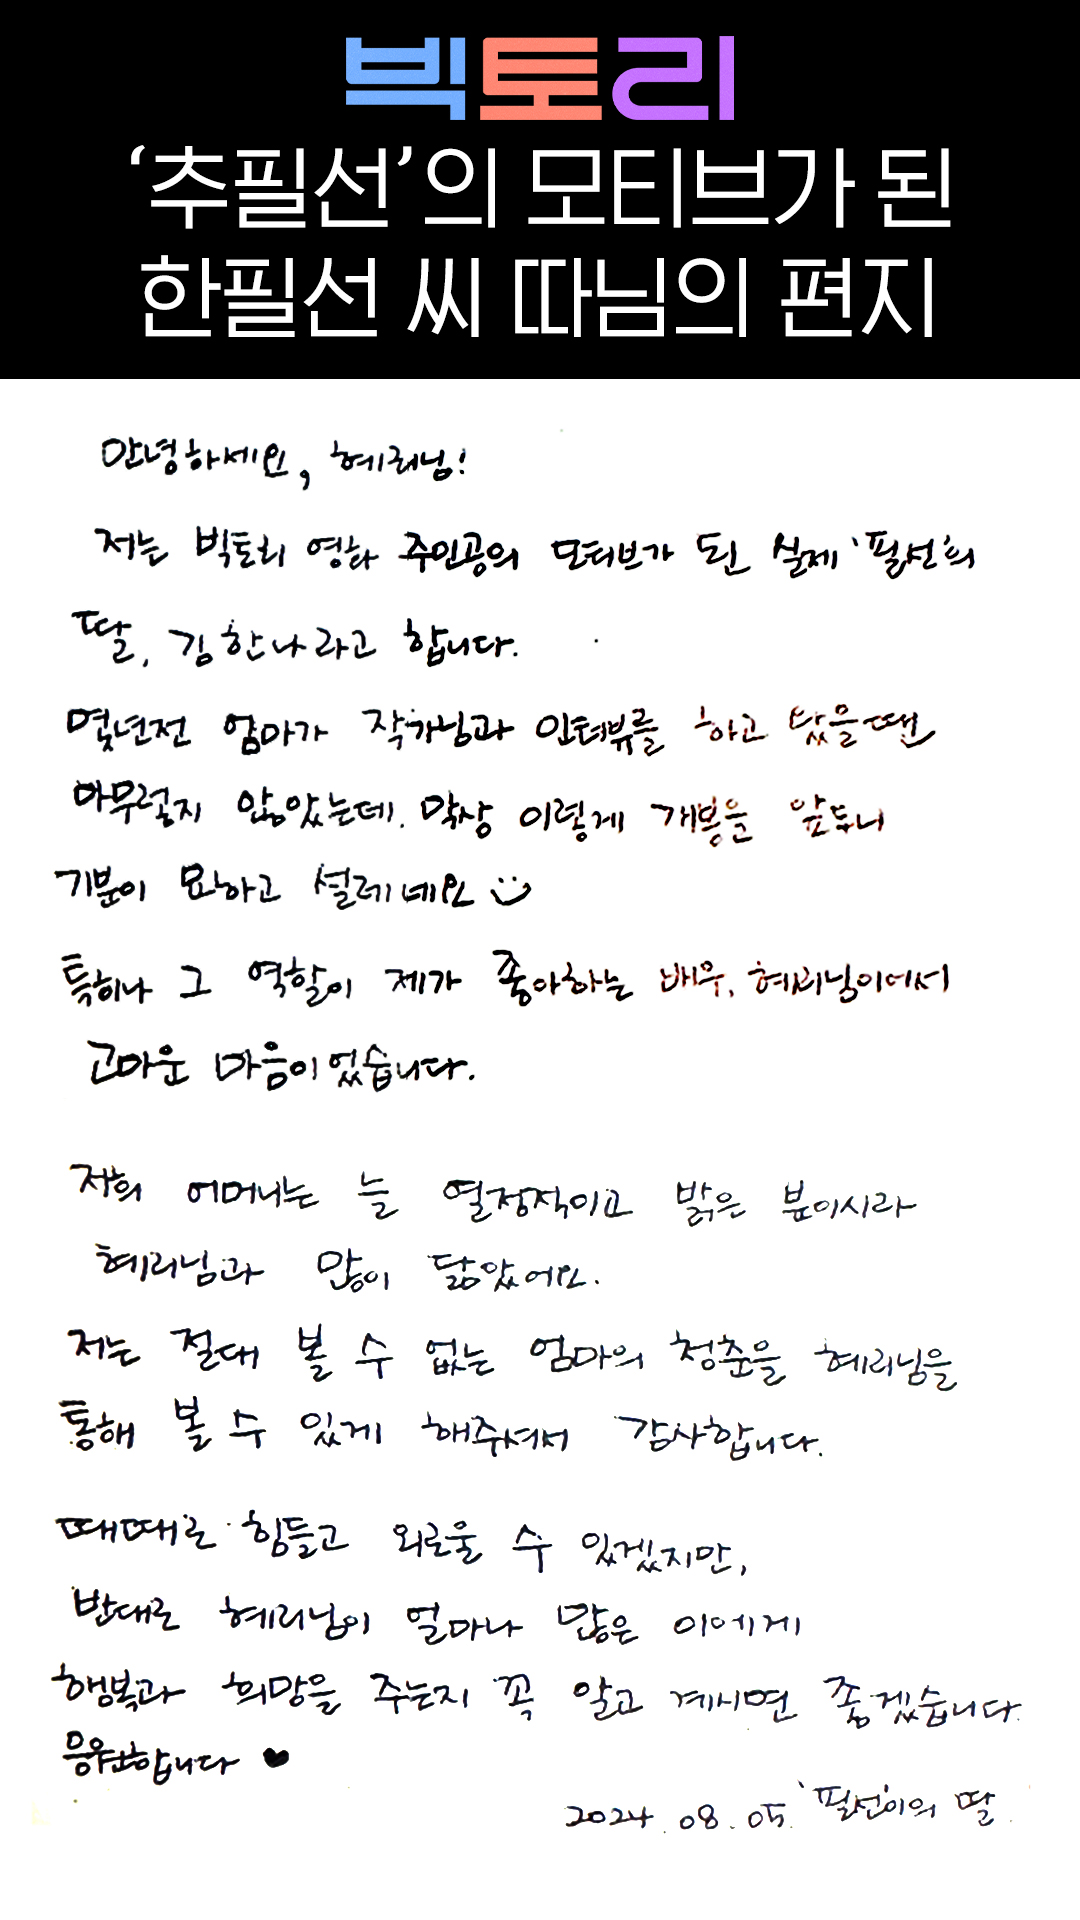 빅토리
‘추필선’의 모티브가 된
한필선 씨 따님의 편지
안녕하세요, 혜리님!
저는 빅토리 영화 주인공의 모티브가 된 실제 ‘필선’의
딸, 김한나라고 합니다.
몇년전 엄마가 작가님과 인터뷰를 하고 났을땐
아무렇지 않았는데. 막상 이렇게 개봉을 앞두니
기분이 묘하고 설레네요 :)
특히나 그 역할이 제가 좋아하는 배우, 혜리님이어서
고마운 마음이었습니다.
저희 어머니는 늘 열정적이고 밝은 분이시라
혜리님과 많이 닮았어요.
저는 절대 볼 수 없는 엄마의 청춘을 혜리님을
통해 볼 수 있게 해주셔서 감사합니다.
때때로 힘들고 외로울 수 있겠지만,
반대로 혜리님이 얼마나 많은 이에게
행복과 희망을 주는지 꼭 알고 계시면 좋겠습니다.
응원합니다 ♥
2024.08.05. ‘필선’이의 딸